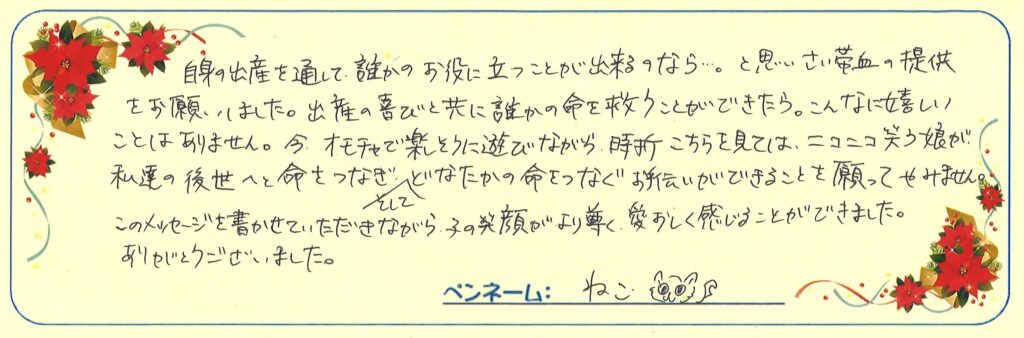 自身の出産を通して、誰かのお役に立つことが出来るのなら…。と思いさい帯血の提供
をお願いしました。出産の喜びと共に誰かの命を救うことができたら。こんなに嬉しい
ことはありません。今、オモチャで楽しそうに遊びながら、時折こちらを見ては、ニコニコ笑う娘が、
私達の後世へと命をつなぎ、どなたかの命をつなぐお手伝いができることを願ってやみません。
そして
このメッセージを書かせていただきながら、子の笑顔がより尊く、愛おしく感じることができました。
ありがとうございました。
ペンネーム: ねこ